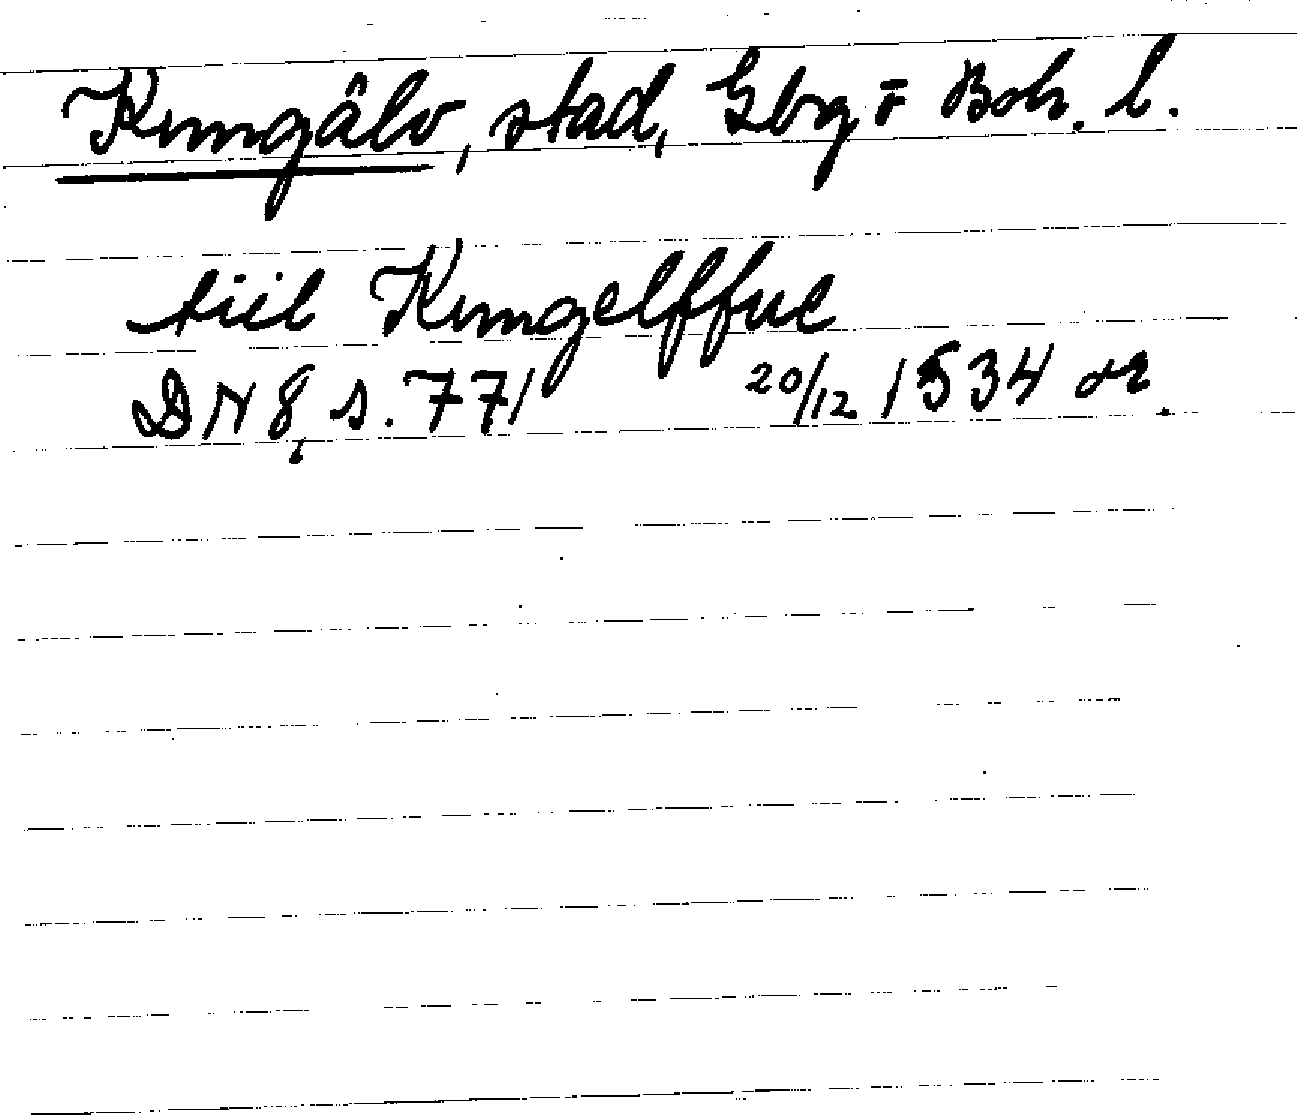 Kungälv, stad, Gbg o Boh. l.
tiil Kungelffue
DN 8, s. 771 20/12 1534 or.